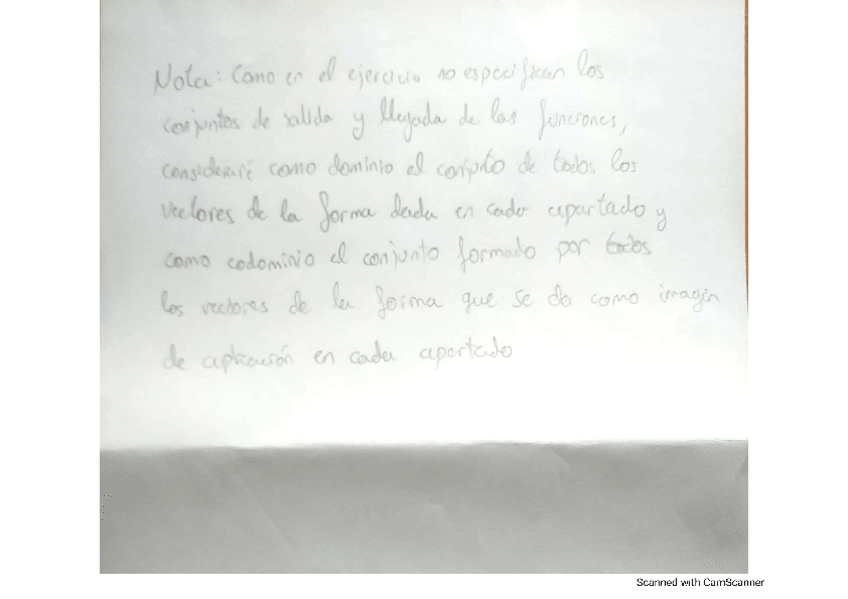 Nota: Como en el ejercicio no especifican los
conjuntos de salida y llegada de las funciones,
consideraré como dominio el conjunto de todos los
vectores de la forma dada en cada apartado y
como codominio el conjunto formado por todos
los vectores de la forma que se da como imagen
de aplicación en cada apartado
Scanned with CamScanner